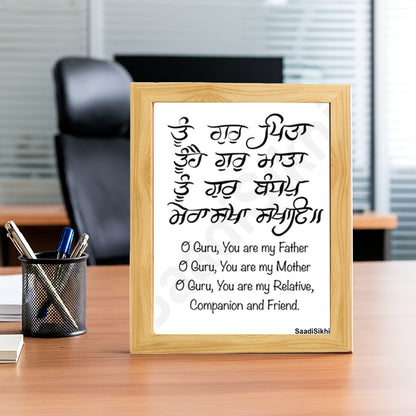 ਤੂੰ ਗੁਰੁ ਪਿਤਾ
ਤੂੰਹੈ ਗੁਰੁ ਮਾਤਾ
ਤੂੰ ਗੁਰੁ ਬੰਧਪੁ
ਮੇਰਾ ਸਖਾ ਸਖਾਇ॥
O Guru, You are my Father
O Guru, You are my Mother
O Guru, You are my Relative,
Companion and Friend.
SaadiSikhi